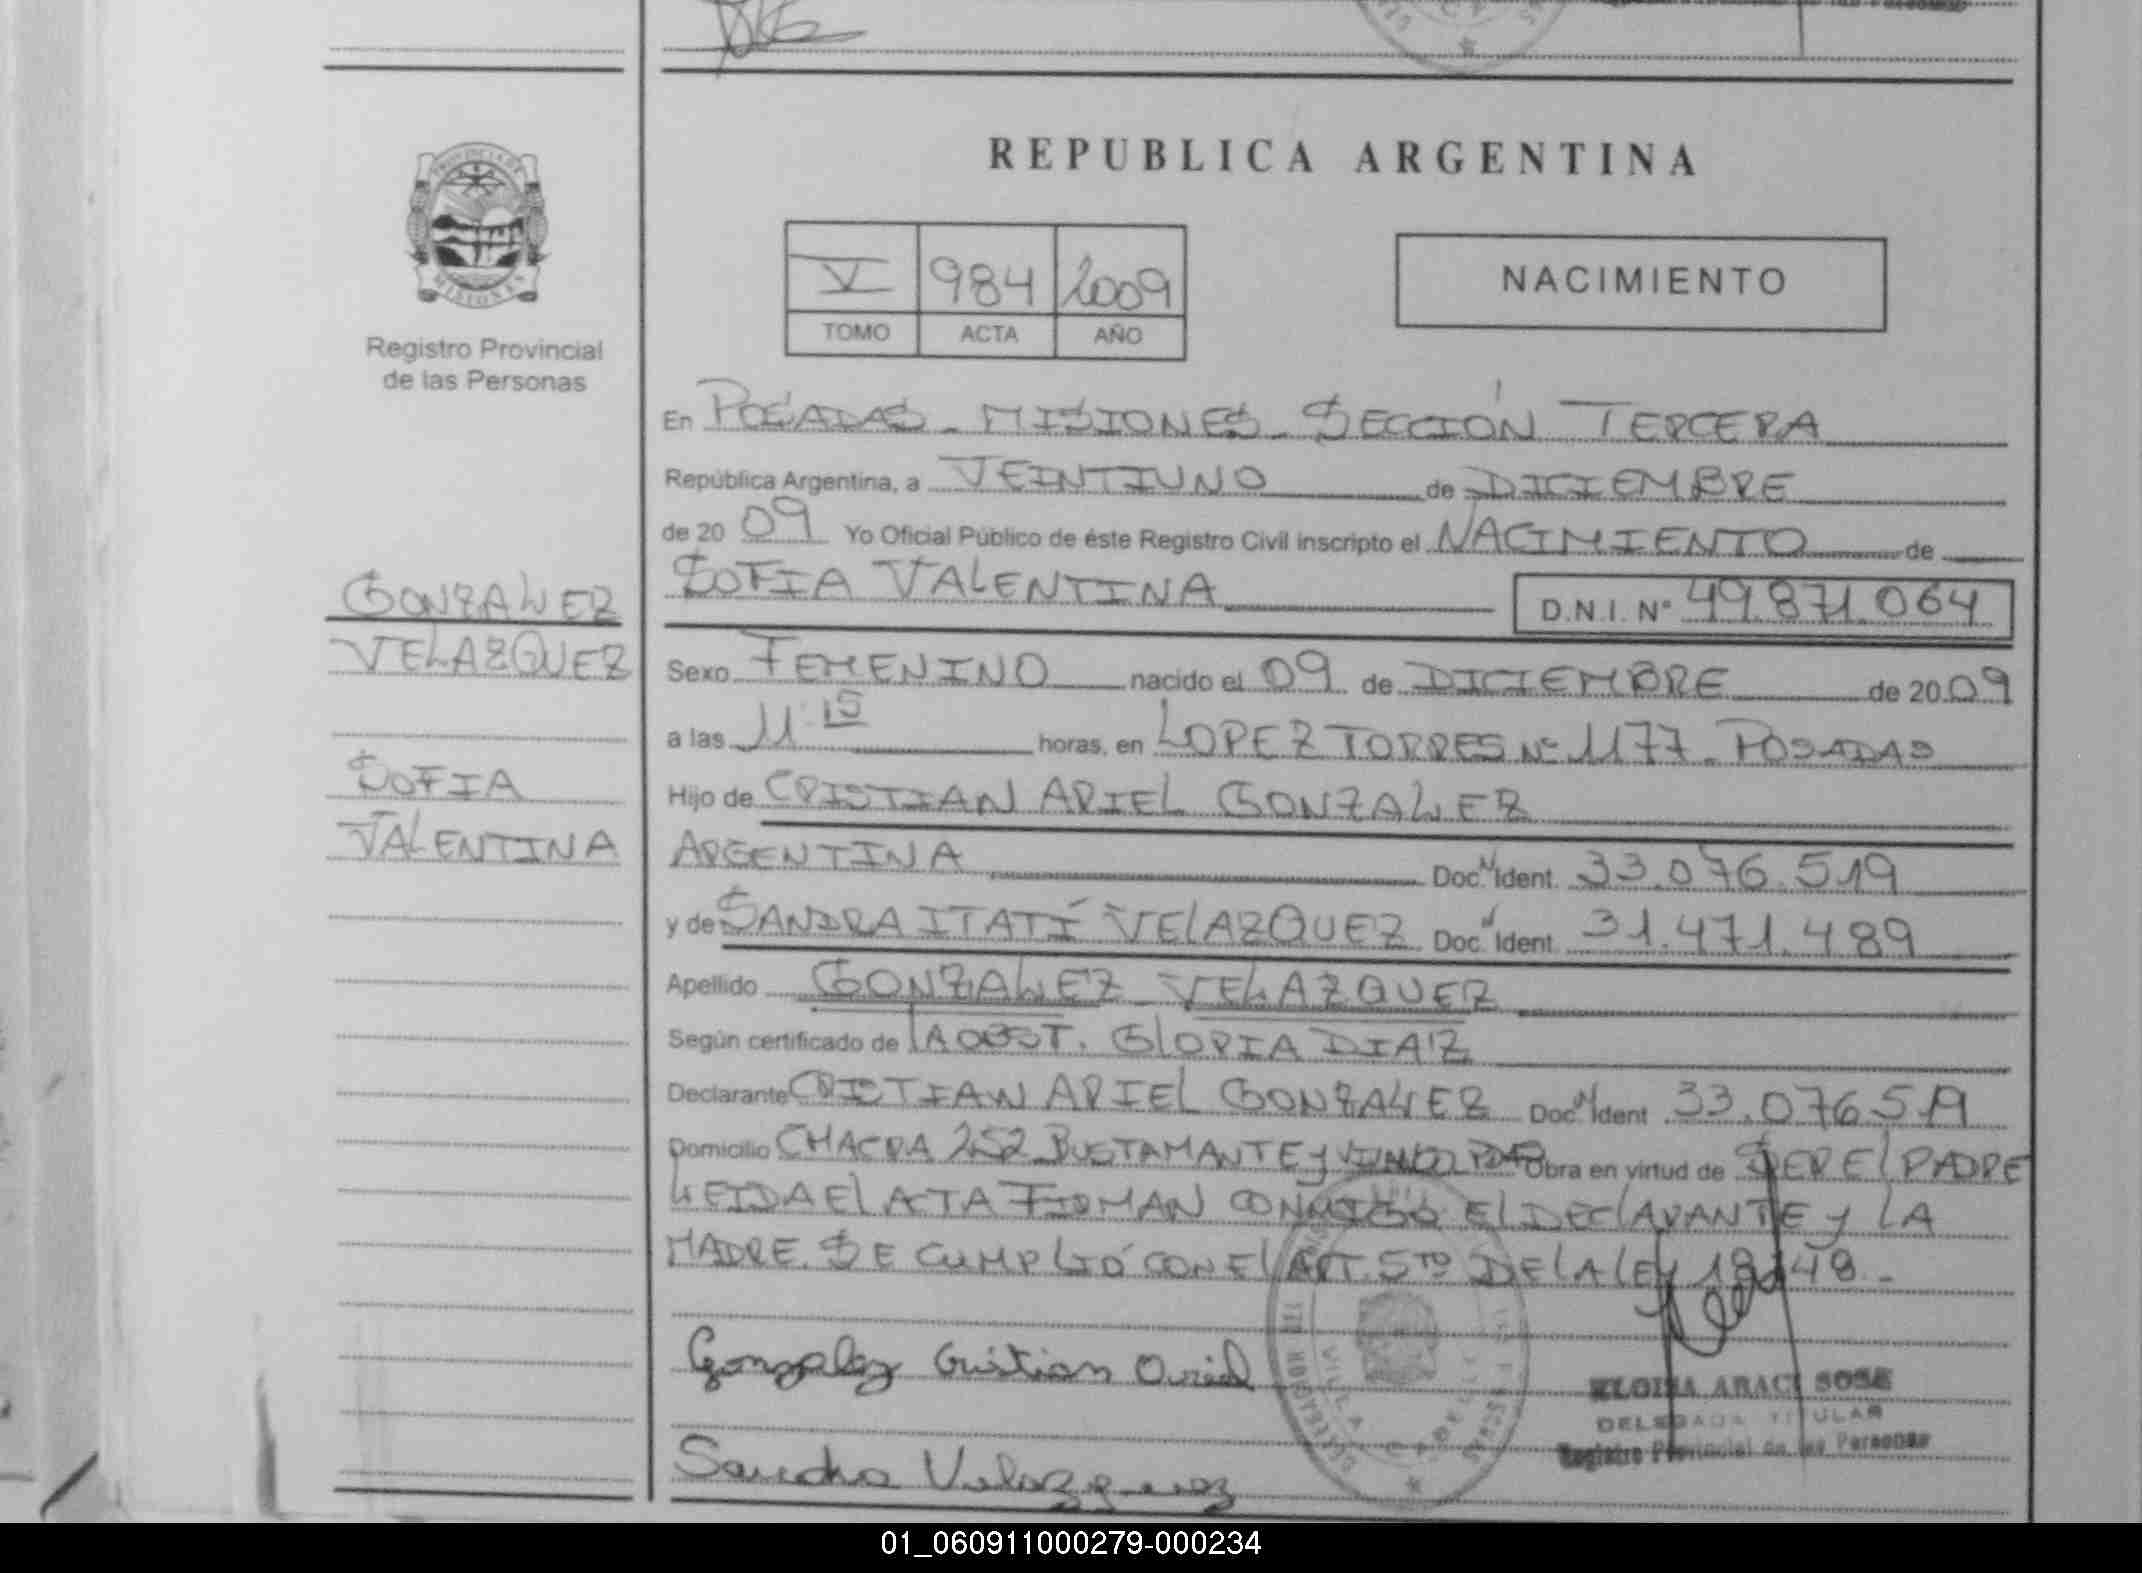 REPUBLICA ARGENTINA
PROVINCIA DE
MISIONES
Registro Provincial
de las Personas
V 984 2009
TOMO ACTA AÑO
NACIMIENTO
En POSADAS - MISIONES - SECCIÓN TERCERA
República Argentina, a VEINTIUNO de DICIEMBRE
de 20 09 Yo Oficial Público de éste Registro Civil inscripto el NACIMIENTO de
SOFIA VALENTINA D.N.I. Nº 49.871.064
GONZALEZ
VELAZQUEZ
SOFIA
VALENTINA
Sexo FEMENINO nacido el 09 de DICIEMBRE de 20 09
a las 11 15 horas, en LOPEZ TORRES Nº 1177 - POSADAS
Hijo de CRISTIAN ARIEL GONZALEZ
ARGENTINA Doc. Ident. 33.076.519
y de SANDRA ITATÍ VELAZQUEZ Doc. Ident. 31.471.489
Apellido GONZALEZ VELAZQUEZ
Según certificado de LA OBST. GLORIA DIAZ
Declarante CRISTIAN ARIEL GONZALEZ Doc. Ident. 33.076519
Domicilio CHACRA 252 BUSTAMANTE y Obra en virtud de SER EL PADRE
LEIDA EL ACTA FIRMAN CONMIGO EL DECLARANTE y LA
MADRE. SE CUMPLIÓ CON EL ART. 5TO DE LA LEY
Gonzalez Cristian Ariel
Sandra Velazquez
DELEGADA TITULAR
Registro Provincial de las Personas
01_060911000279-000234